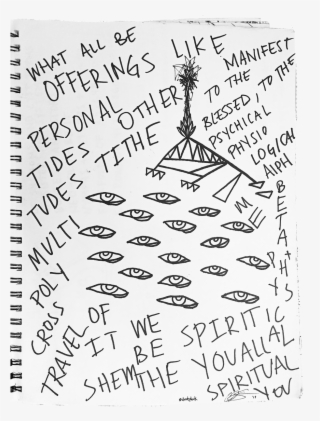 WHAT ALL BE
OFFERINGS LIKE
PERSONAL OTHER
TIDES TITHE
TVDES
MULTI
POLY
CROSS
TRAVEL OF
MANIFEST
TO THE TO THE
BLESSED,
PSYCHICAL
PHYSIO
LOGICAL
ALPH
BETA
ME
PHYS
IT WE SPIRITIC
BE YOUALLAL
SHEMTHE SPIRITUAL
YOU